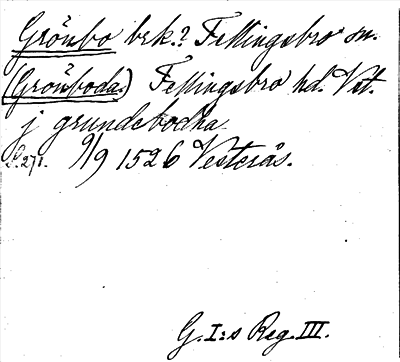 Grönbo brk.? Fellingsbro sn.
(Grönboda.) Fellingsbro hd. Vst.
j grundebodha
S. 271. 9/9 1526 Vesterås.
G. I:s Reg. III.